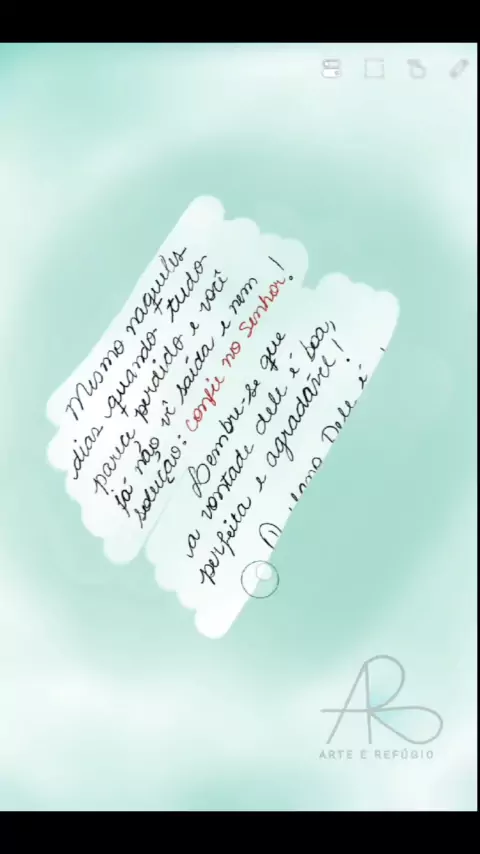 Mesmo naqueles
dias quando tudo
parece perdido e você
já não vê saída e nem
solução: confie no Senhor!
Lembre-se que
a vontade dele é boa,
perfeita e agradável!
Dele é
AR
ARTE E REFÚGIO